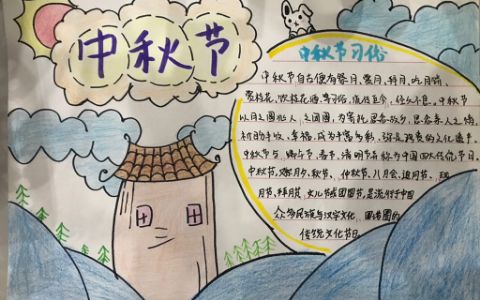 中秋节
中秋节习俗
中秋节自古便有祭月、赏月、拜月、吃月饼、
赏桂花、饮桂花酒等习俗，流传至今，经久不息。中秋节
以月之圆兆人之团圆，为寄托思念故乡，思念亲人之情，
祈盼丰收、幸福，成为丰富多彩、弥足珍贵的文化遗产。
中秋节与端午节、春节、清明节并称为中国四大传统节日。
中秋节，又称月夕、秋节、仲秋节、八月会、追月节、玩
月节、拜月节、女儿节或团圆节，是流行于中国
众多民族与汉字文化圈诸国的
传统文化节日